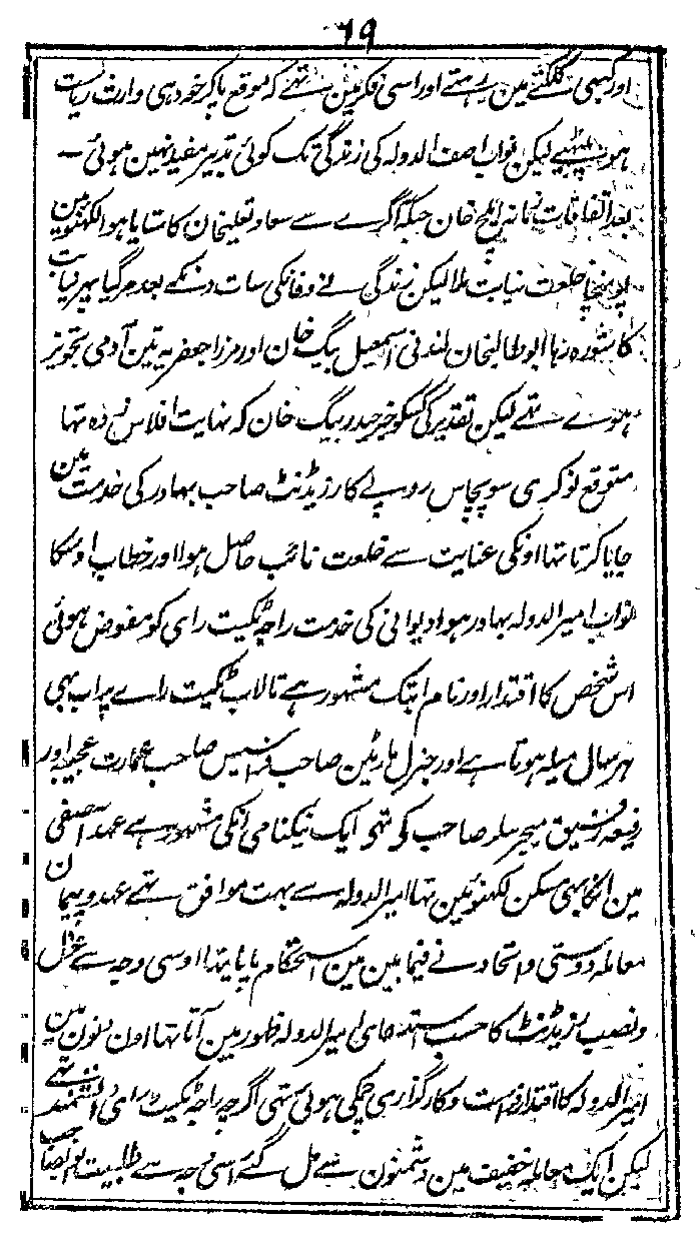 ٦٩
اور کبھی کلکتے مین رہتے اور اسی فکر مین تھے کہ موقع پاکر خود ہی وارث ریاست
ہو بیٹھے لیکن نواب آصف الدولہ کی زندگی تک کوئی تدبیر مفید نہین ہوئی ۔
بعد اتفاقات زمانہ ایلچ خان جبکہ آگرے سے سعادتعلیخان کا ستایا ہوا لکھنؤ مین
پہونچا خلعت نیابت ملا لیکن زندگی نے وفا نکی سات دنکے بعد مر گیا پھر نیابت
کا مشورہ رہا ابوطالبخان لندنی اسمعیل بیگ خان اور مرزا جعفر یہ تین آدمی تجویز
ہوے تھے لیکن تقدیر کی کسکو خبر حیدر بیگ خان کہ نہایت افلاس زدہ تھا
متوقع نوکری سو پچاس روپے کا رزیڈنٹ صاحب بہادر کی خدمت مین
جایا کرتا تھا اونکی عنایت سے خلعت نائب حاصل ہوا اور خطاب اوسکا
نواب امیر الدولہ بہادر ہوا دیوانی کی خدمت راجہ ٹکیت رای کو مفوض ہوئی
اس شخص کا اقتدار اور نام ابتک مشہور ہے تالاب ٹکیت راے پر اب بھی
ہر سال میلہ ہوتا ہے اور جنرل مارٹین صاحب فرانسیس صاحب عمارت عجیبہ اور
رفیعہ میجر صاحب کی تھی ایک نیکنامی انکی مشہور ہے عہد آصفی
مین انکا بھی مسکن لکھنؤ مین تھا امیر الدولہ سے بہت موافق تھے عہد و پیمان
معاملہ دوستی و اتحاد نے فیما بین مین استحکام پایا تھا اوسی وجہ سے عزل
و نصب رزیڈنٹ کا حسب استدعای امیر الدولہ ظہور مین آتا تھا اون دنون مین
امیر الدولہ کا اقتدار و کارگزاری چمکی ہوئی تھی اگرچہ راجہ ٹکیت رای دانشمند تھے
لیکن ایک معاملہ خفیف مین دشمنون سے مل گئے اسی وجہ سے طبیعت نواب صاحب